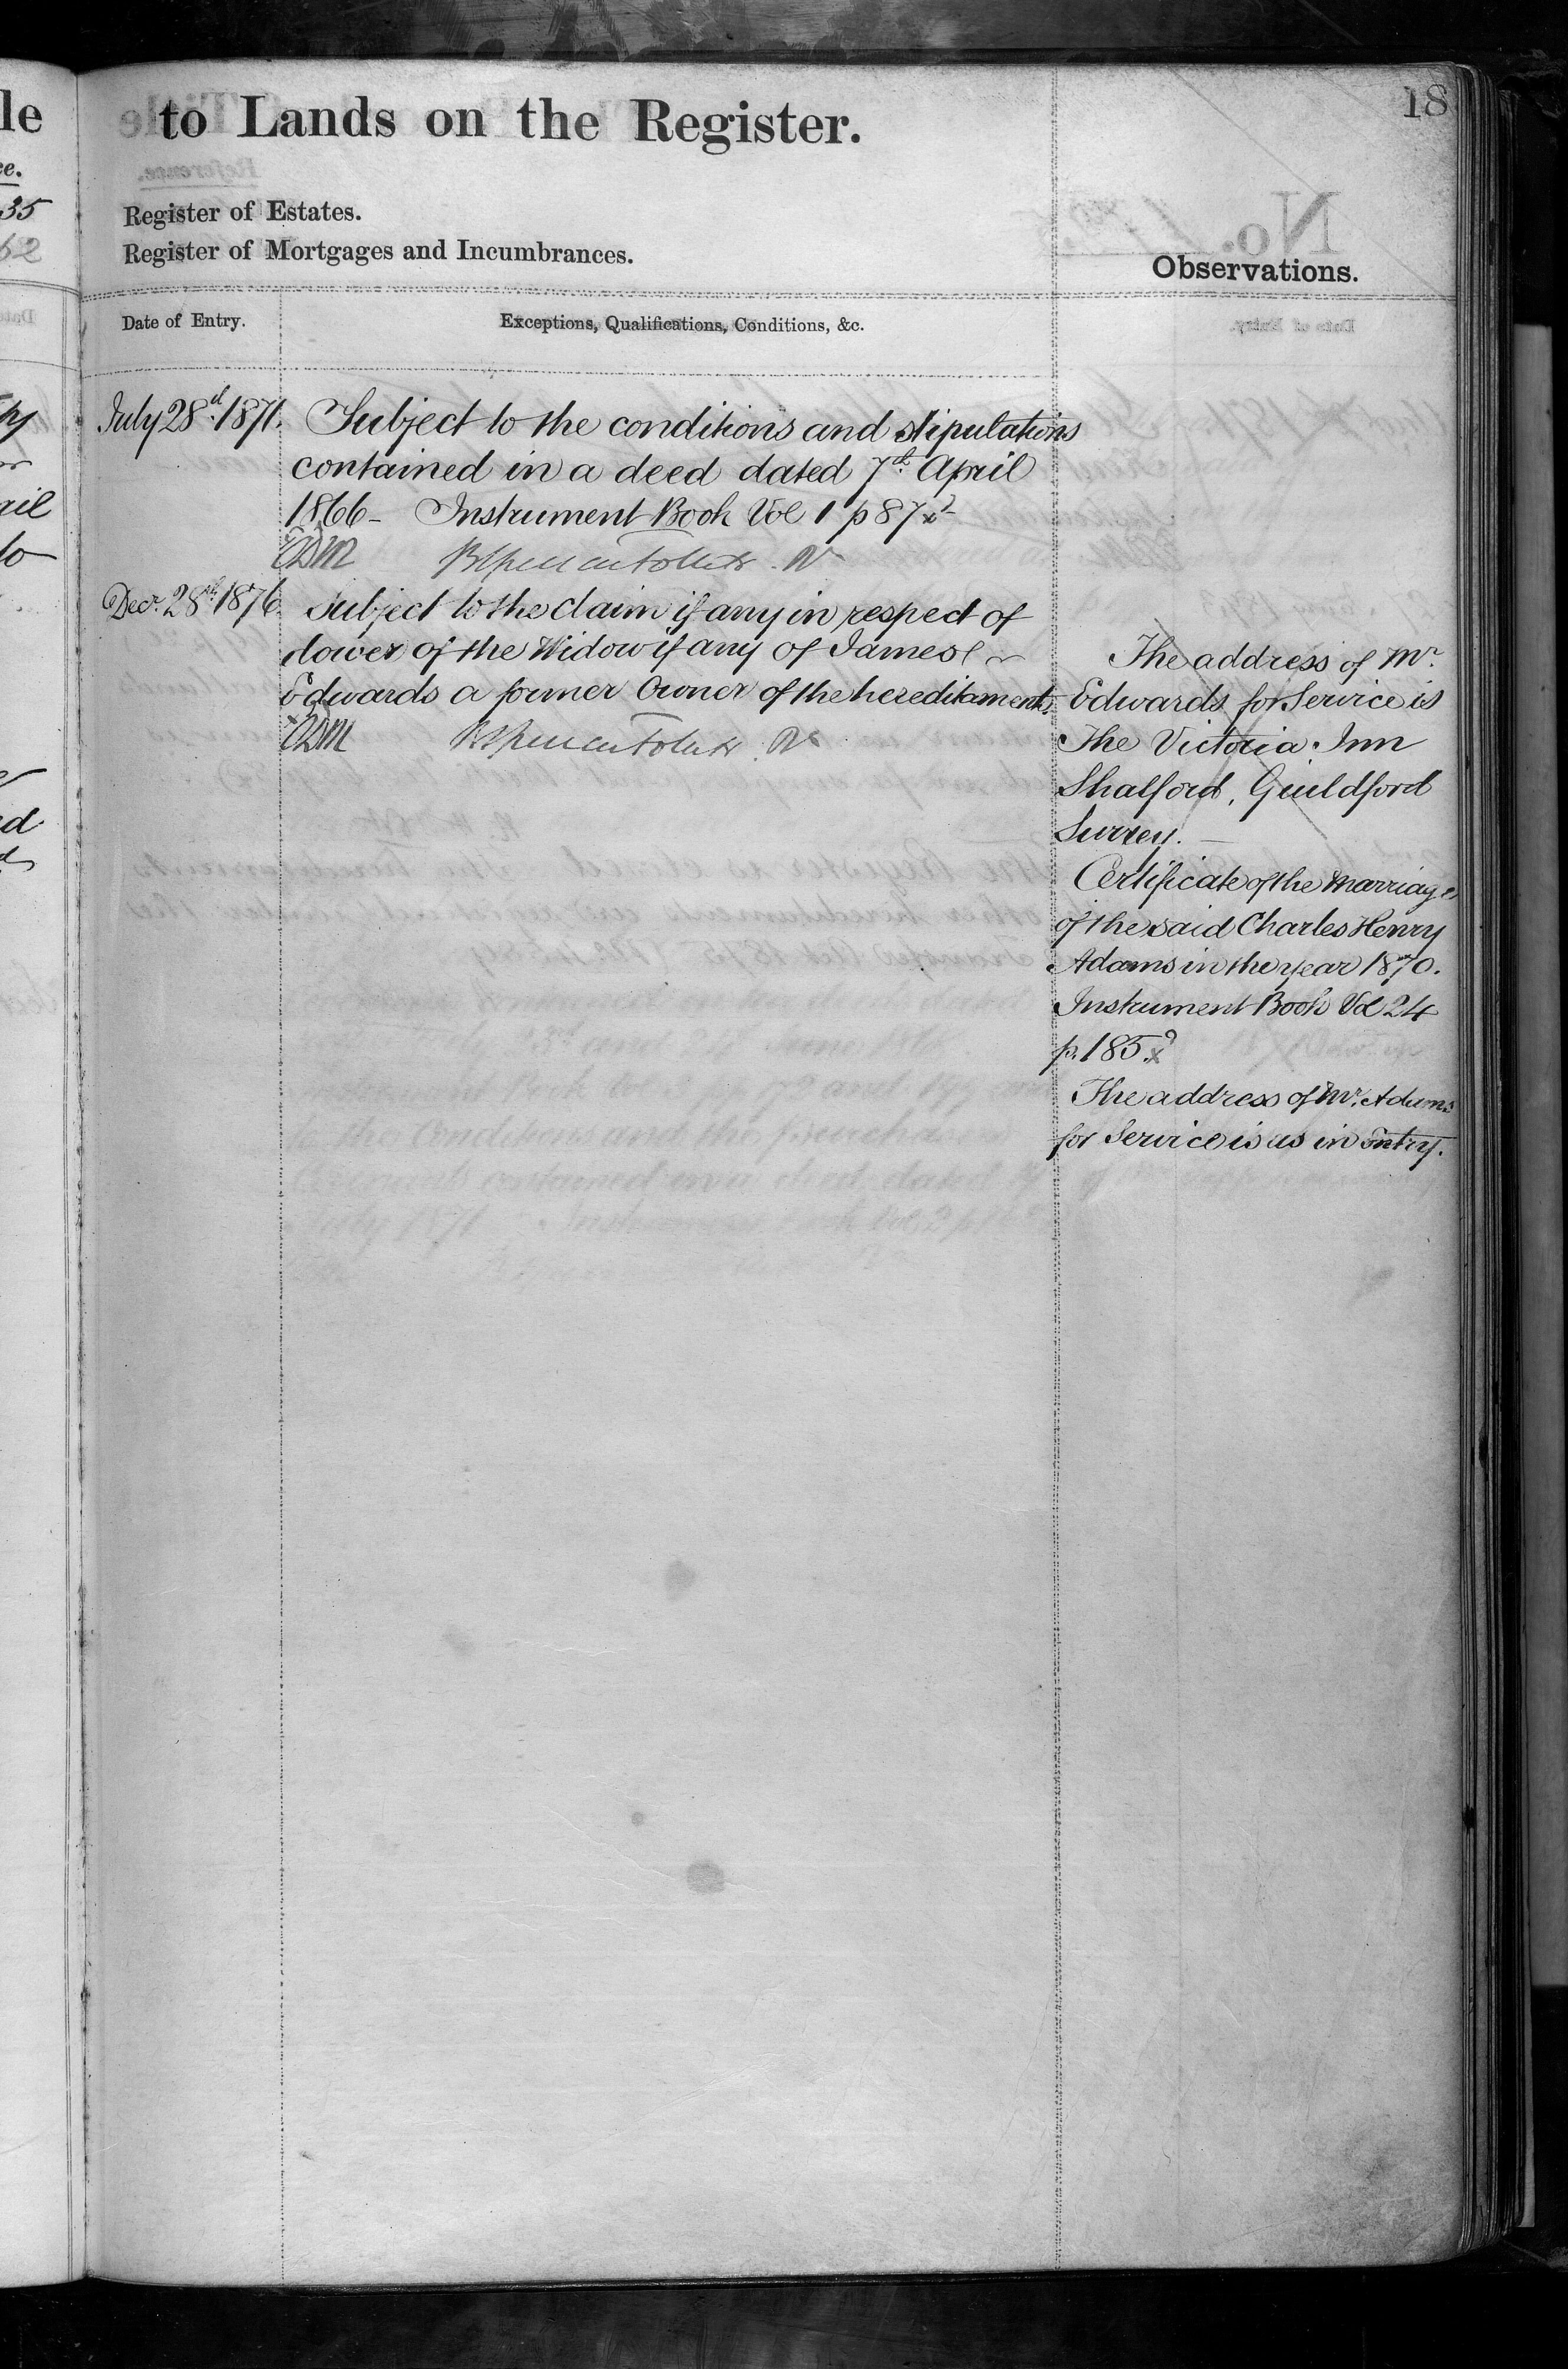 18
to Lands on the Register.
Register of Estates.
Register of Mortgages and Incumbrances.
Observations.
Date of Entry.
Exceptions, Qualifications, Conditions, &c.
July 28th 1871. Subject to the conditions and stipulations
contained in a deed dated 7th April
1866 - Instrument Book Vol 1 p 87
Decr. 28th 1876 Subject to the claim if any in respect of
dower of the Widow if any of James
Edwards a former Owner of the hereditaments.
The address of Mr.
Edwards for Service is
The Victoria Inn
Shalford, Guildford
Surrey. —
Certificate of the Marriage
of the said Charles Henry
Adams in the year 1870.
Instrument Book Vol 24
p. 185
The address of Mr. Adams
for Service is as in Entry.
le
ce.
35
62
ail
to